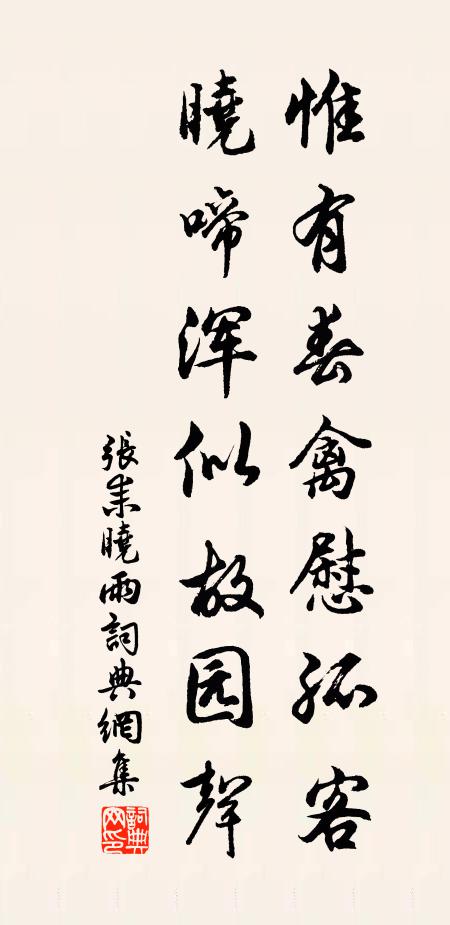 惟有春禽慰孤客
曉啼浑似故园聲
張耒曉雨詞典網集
詞典網印